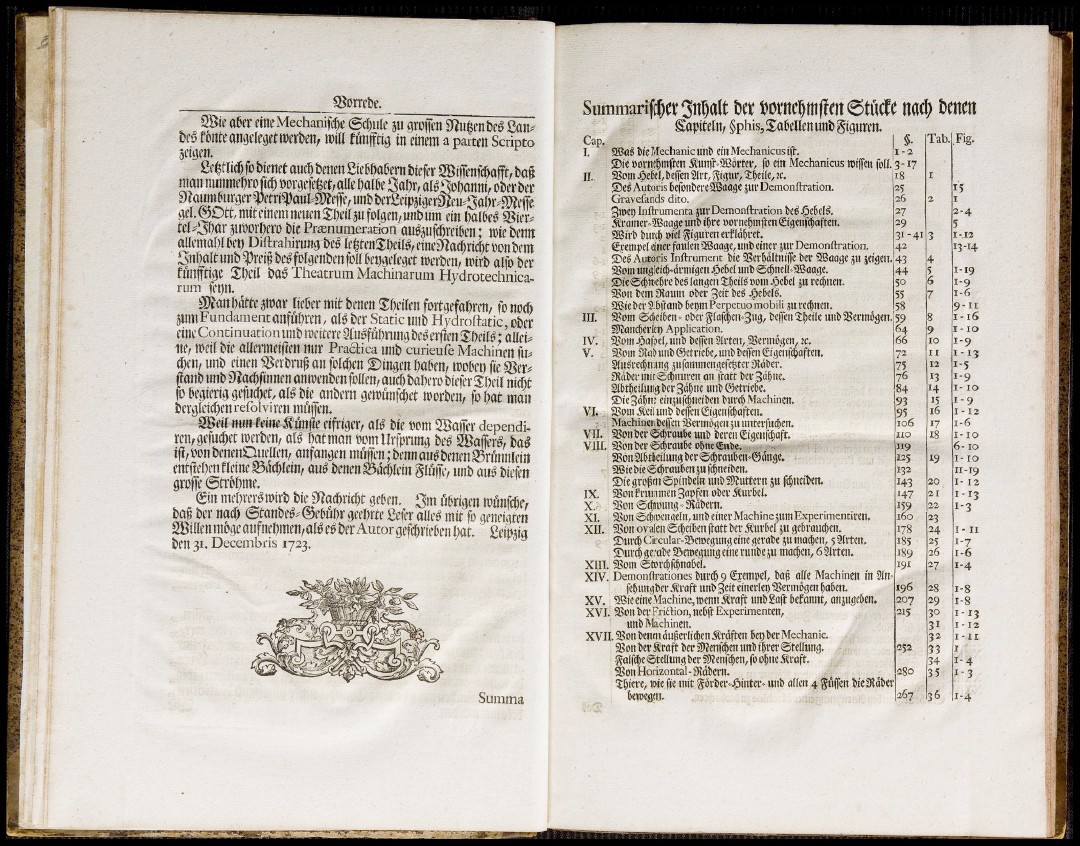 Vorrede.
Wie aber eine Mechanische Schule zu grossen Nutzen des Lan-
des könte angeleget werden, will künfftig in einem a parten Scripto
zeigen.
Letztlich so dienet auch denen Liebhabern dieser Wissenschafft, daß
man nunmehro sich vorgesetzet, alle halbe Jahr, als Johanni, oder der
Naumburger Petri Paul-Messe, und der Leipziger Neu-Jahr-Messe
gel. GOtt, mit einem neuen Theil zu folgen, und um ein halbes Vier-
tel-Jhar zuvorhero die Prænumeration auszuschreiben; wie denn
allemahl bey Distrahirung des letzten Theils, eine Nachricht von dem
Inhalt und Preiß des folgenden soll beygeleget werden, wird also der
künfftige Theil das Theatrum Machinarum Hydrotechnica-
rum seyn.
Man hätte zwar lieber mit denen Theilen fortgefahren, so noch
zum Fundament anführen, als der Static und Hydrostatic, oder
eine Continuation und weitere Ausführung des ersten Theils; allei-
ne, weil die allermeisten nur Practica und curieuse Machinen su-
chen, und einen Verdruß an solchen Dingen haben, wobey sie Ver-
stand und Nachsinnen anwenden sollen, auch dahero dieser Theil nicht
so begierig gesuchet, als die andern gewünschet worden, so hat man
dergleichen resolviren müssen.
Weil nun keine Künste eifriger, als die vom Wasser dependi-
ren, gesuchet werden, als hat man vom Ursprung des Wassers, das
ist, von denen Quellen, anfangen müssen; denn aus denen Brünnlein
entstehen kleine Bächlein, aus denen Bächlein Flüsse, und aus diesen
grosse Ströhme.
Ein mehrers wird die Nachricht geben. Im übrigen wünsche,
daß der nach Standes-Gebühr geehrte Leser alles mit so geneigten
Willen möge aufnehmen, als es der Autor geschrieben hat. Leipzig
den 31. Decembris 1723.
Summa
Summarischer Jnhalt der vornehmsten Stücke nach denen
Capiteln, §phis, Tabellen und Figuren.
Cap. §. Tab. Fig.
I. Was die Mechanic und ein Mechanicus ist. 1-2
Die vornehmsten Kunst-Wörter, so ein Mechanicus wissen soll. 3-17
II. Vom Hebel, dessen Art, Figur, Theile, ꝛc. 18 1
Des Autoris besondere Waage zur Demonstration. 25 15
Gravesands dito. 26 2 1
Zwey Instrumenta zur Demonstration des Hebels. 27 2-4
Kramer-Waage und ihre vornehmsten Eigenschaften. 29 5
Wird durch viel Figuren erklähret. 31-41 3 1-12
Exempel einer faulen Waage, und einer zur Demonstration. 42 13-14
Des Autoris Instrument die Verhältnisse der Waage zu zeigen. 43 4
Vom ungleich-ärmigen Hebel und Schnell-Waage. 44 5 1-19
Die Schwehre des langen Theils vom Hebel zu rechnen. 50 6 1-9
Von dem Raum oder Zeit des Hebels. 55 7 1-6
Wie der Abstand beym Perpetuo mobili zu rechnen. 58 9-11
III. Vom Scheiben- oder Flaschen-Zug, dessen Theile und Vermögen. 59 8 1-16
Mancherley Application. 64 9 1-10
IV. Vom Haspel, und dessen Arten, Vermögen, ꝛc. 66 10 1-9
V. Vom Rad und Getriebe, und dessen Eigenschaften. 72 11 1-13
Ausrechnung zusammengesetzter Räder. 75 12 1-5
Räder mit Schnüren an statt der Zähne. 76 13 1-9
Abtheilung der Zähne und Getriebe. 84 14 1-10
Die Zähne einzuschneiden durch Machinen. 93 15 1-9
VI. Vom Keil und dessen Eigenschaften. 95 16 1-12
Machinen dessen Vermögen zu untersuchen. 106 17 1-6
VII. Von der Schraube und deren Eigenschaft. 110 18 1-10
VIII. Von der Schraube ohne Ende. 119 6-10
Von Abtheilung der Schrauben-Gänge. 125 19 1-10
Wie die Schrauben zu schneiden. 132 11-19
Die großen Spindeln und Muttern zu schneiden. 143 20 1-12
IX. Von krummen Zapfen oder Kurbel. 147 21 1-13
X. Von Schwung-Rädern. 159 22 1-3
XI. Von Schwengeln, und einer Machine zum Experimentiren. 160 23
XII. Von ovalen Scheiben statt der Kurbel zu gebrauchen. 178 24 1-11
Durch Circular-Bewegung eine gerade zu machen, 5 Arten. 185 25 1-7
Durch gerade Bewegung eine runde zu machen, 6 Arten. 189 26 1-6
XIII. Vom Storchschnabel. 191 27 1-4
XIV. Demonstrationes durch 9 Exempel, daß alle Machinen in An-
sehung der Kraft und Zeit einerley Vermögen haben. 196 28 1-8
XV. Wie eine Machine, wenn Kraft und Last bekannt, anzugeben. 207 29 1-8
XVI. Von der Friction, nebst Experimenten, 215 30 1-13
und Machinen. 31 1-12
XVII. Von denen äußerlichen Kräften bey der Mechanic. 32 1-11
Von der Kraft der Menschen und ihrer Stellung. 252 33 1
Falsche Stellung der Menschen, so ohne Kraft. 34 1-4
Von Horizontal-Rädern. 280 35 1-3
Thiere, wie sie mit Förder-Hinter- und allen 4 Füssen die Räder
bewegen. 267 36 1-4